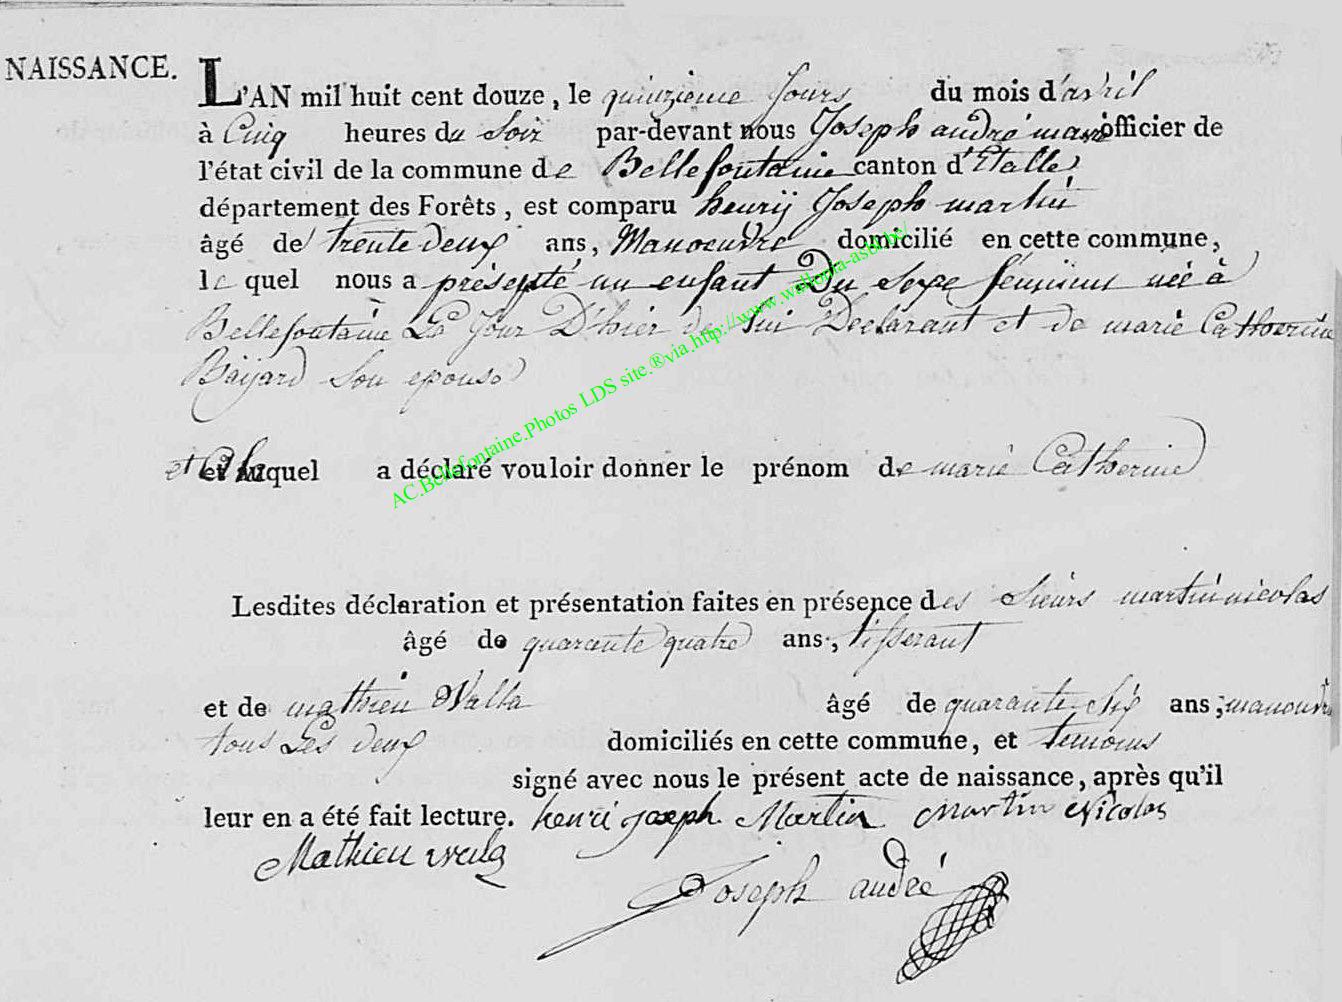 NAISSANCE.
L'AN mil huit cent douze, le quinzieme Jours du mois d'avril
à Cinq heures du Soir par-devant nous Joseph andré maire officier de
l'état civil de la commune de Bellefontaine canton d'Etalle
département des Forêts, est comparu henrij Joseph martin
âgé de trente deux ans, Manoeuvre domicilié en cette commune,
le quel nous a présenté un enfant Du Sexe féminin née à
Bellefontaine Le Jour D'hier de lui Declarant et de marie Catherine
Baijard Son epouse
et auquel a déclaré vouloir donner le prénom de marie Catherine
Lesdites déclaration et présentation faites en présence des Sieurs martin nicolas
âgé de quarante quatre ans, tisserant
et de mathieu Walla âgé de quarante Six ans; manouvre
tous Les deux domiciliés en cette commune, et temoins
signé avec nous le présent acte de naissance, après qu'il
leur en a été fait lecture. henri joseph Martin Martin Nicolas
Mathieu
Joseph andré
AC.Bellefontaine.Photos LDS site.®via.http://www.wallonia-asbl.be/